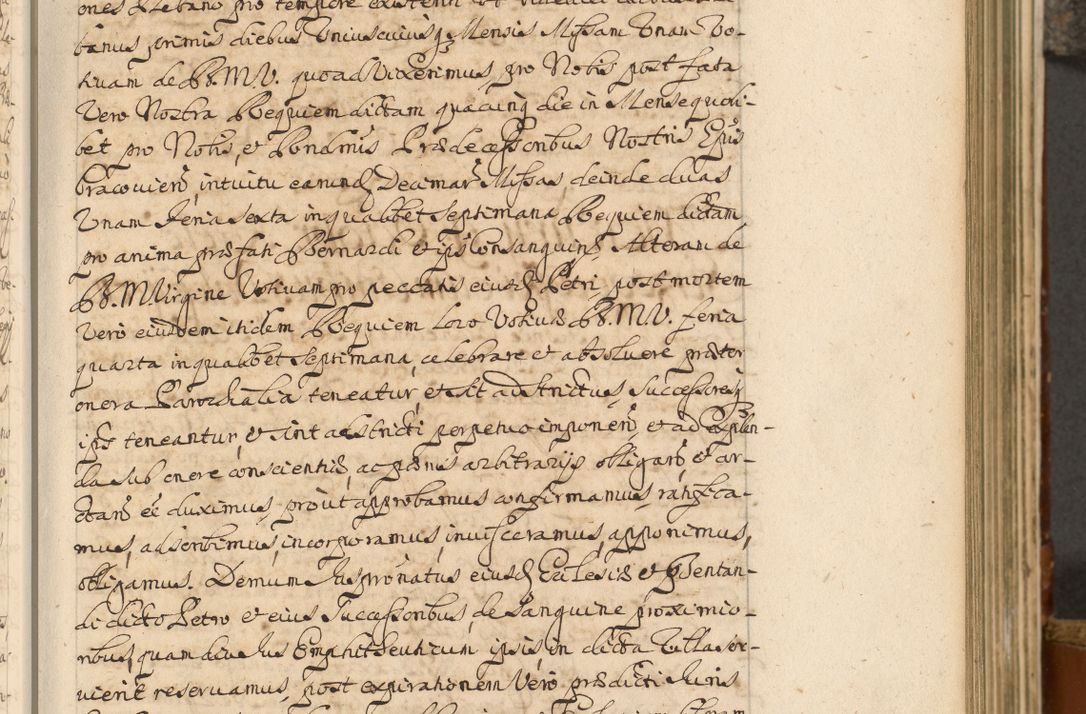 ones Plebano pro tempore existenti
banus primis diebus Uniuscuiusq Mensis Missam Unam Vo-
tivam de B. M. V. quoad Vixerimus, pro Nobis post fata
Vero Nostra Requiem dictam quacunq die in Mense quoli-
bet pro Nobis, et Bondamis Prædecessoribus Nostris Epus
Cracovien, intuitu earund Decimar Missas deinde duas
Unam Feria Sexta in qualibet Septimana Requiem dictam
pro anima præfati Bernardi et ips Consanguine Alteram de
B. M. Virgine Votivam pro peccatis eiusd Petri, post mortem
Vero eiusdem itidem Requiem loco Votivæ B. M. V. feria
quarta in qualibet Septimana, celebrare et absoluere præter
onera Parochialia teneatur, et sit adstrictus, Successoresq
ips teneantur, et sint adstricti perpetuo imponen, et ad explen-
da sub onere conscientiæ, ac pænis arbitrarijs obligare et ar-
ctare duximus, prout approbamus confirmamus, ratifica-
mus, adscribimus, incorporamus, inuisceramus, apponimus,
obligamus. Demum Juspronatus eiusd Ecclesiæ et psentan-
di dicto Petro et eius Successoribus, de Sanguine proximio-
ribus, quam diu Jus Emphiteuticum ipsis in dicta Villa ser-
uierit reseruamus, post expirationem Vero prædicti Juris